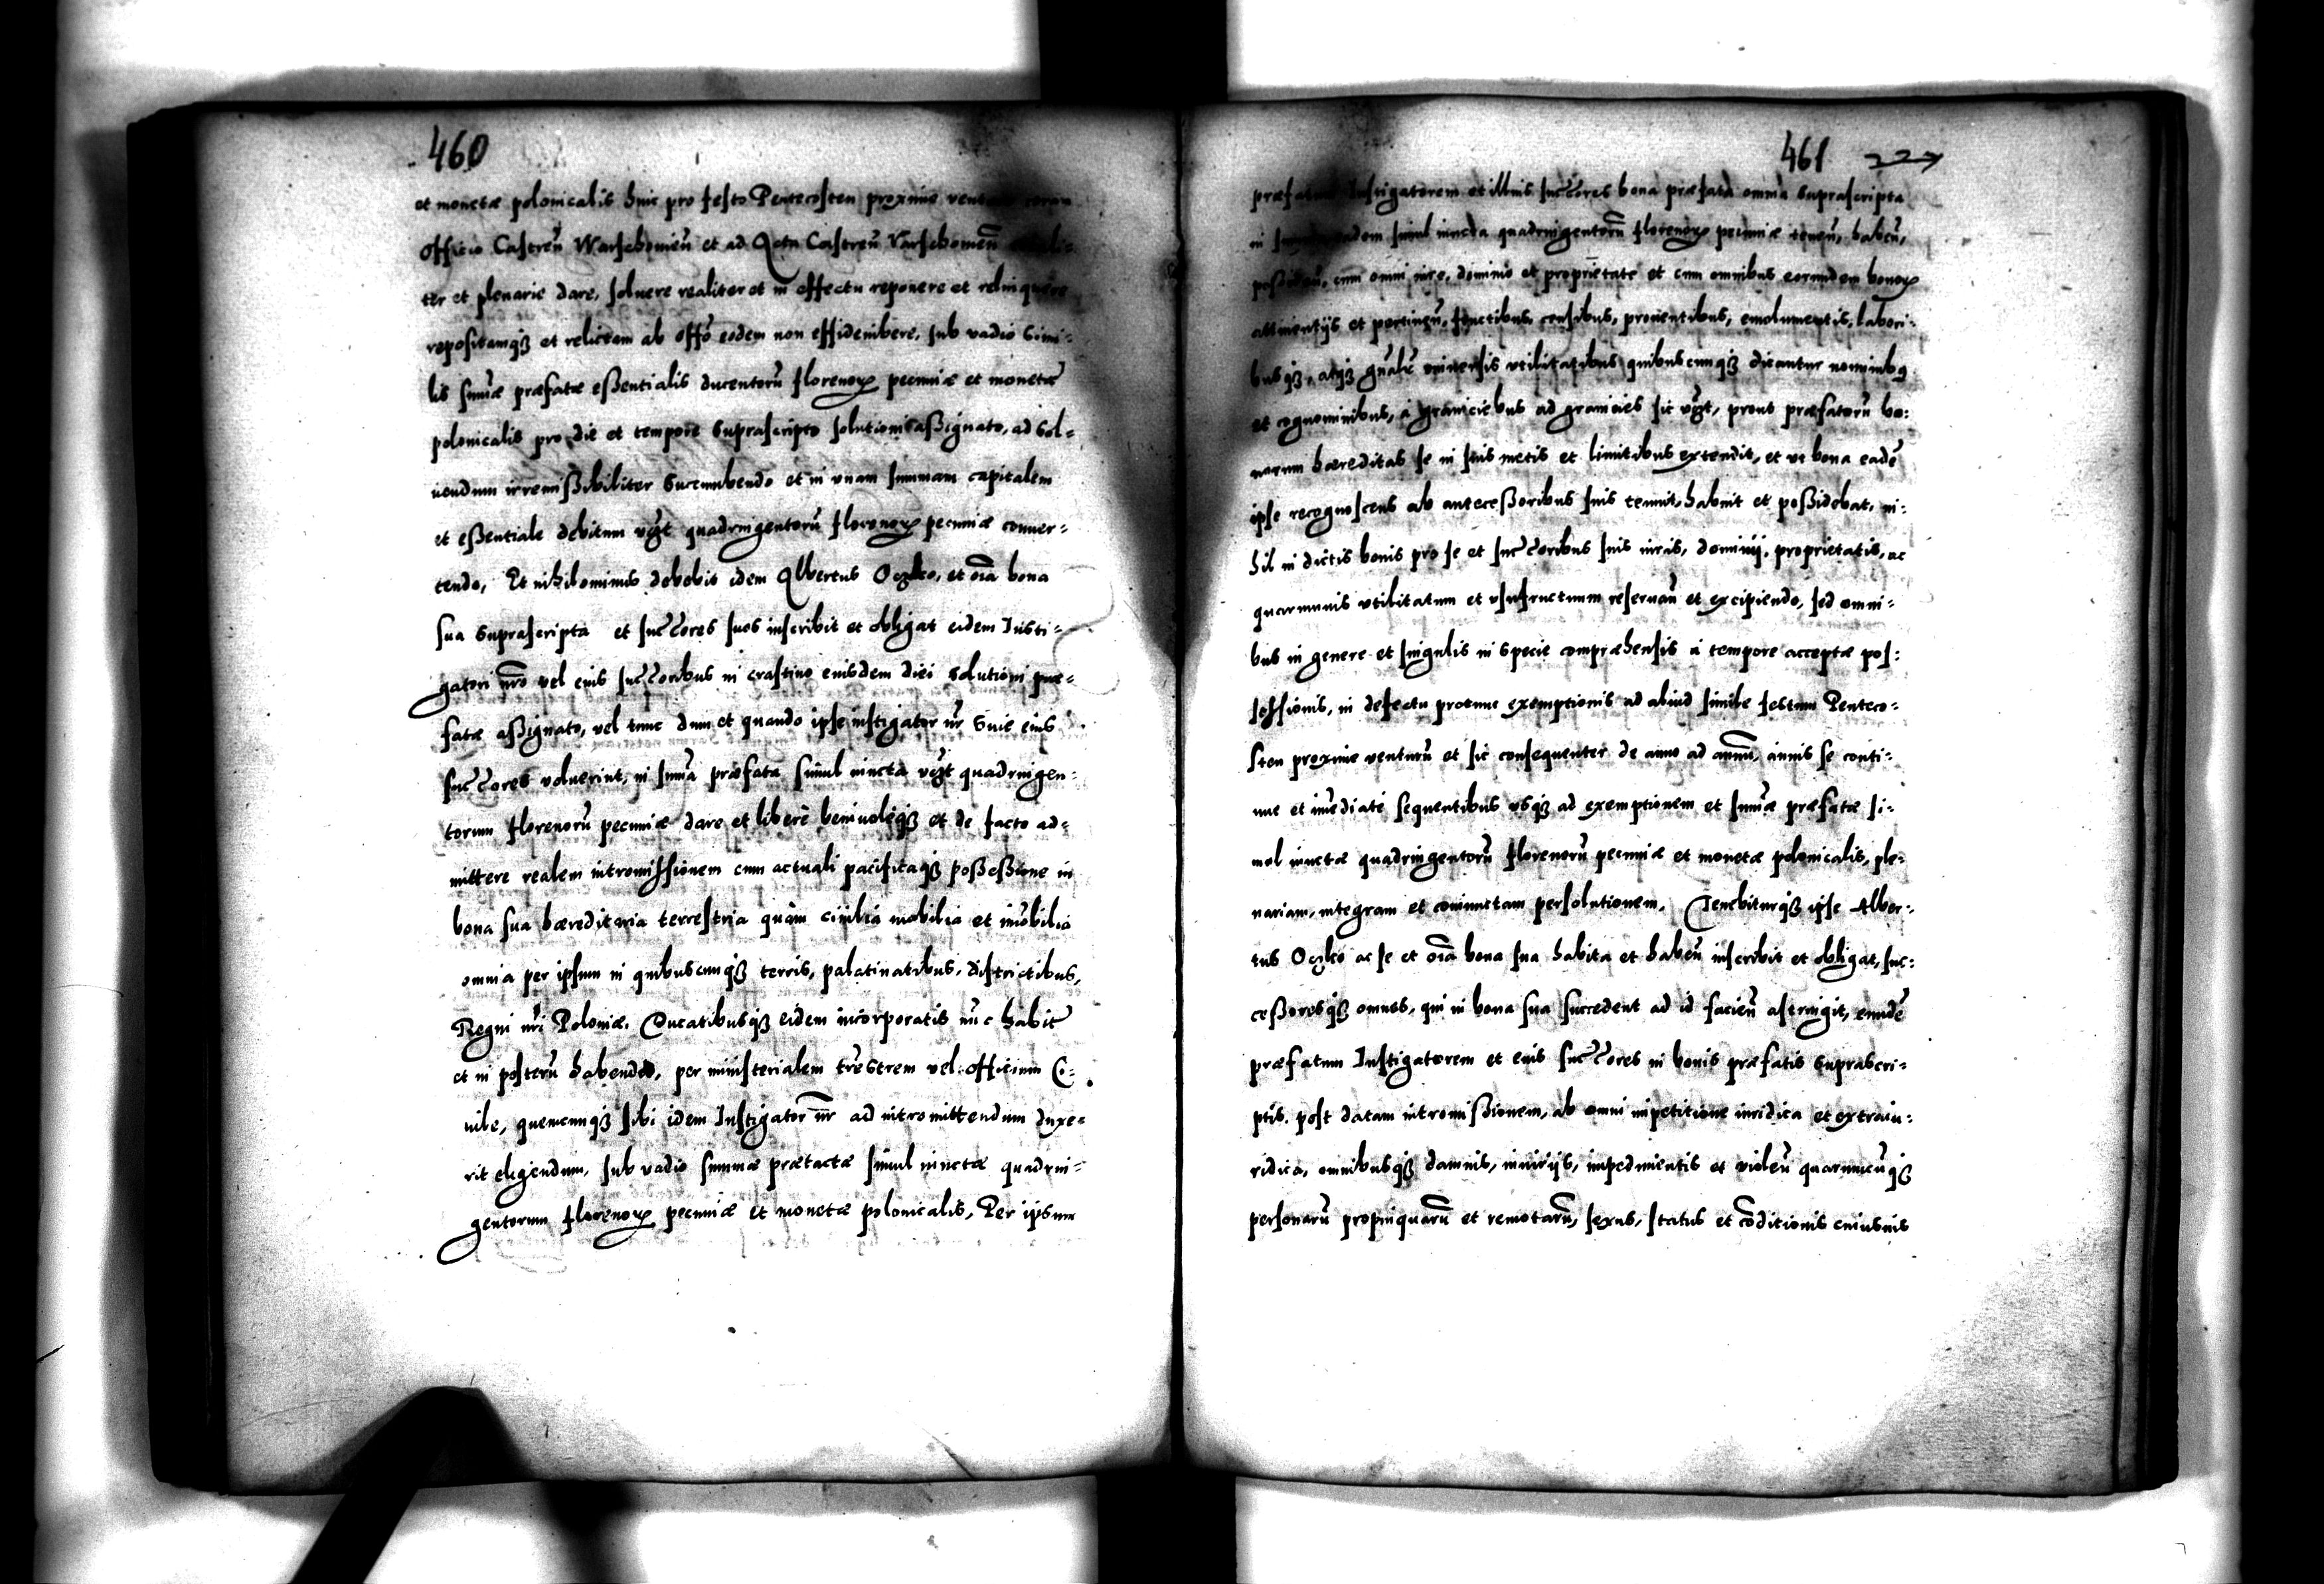 460
et monetæ polonicalis hinc pro festo Pentecosten proxime
officio Castreń Warschowień et ad Acta Castreń Varschowieñ
ter et plenarie dare, soluere realiter et in effectu reponere et relinquere
repositamqȝ et relictam ab offõ eodem non effidenibere, sub vadio simi-
lis sum̃æ præfatæ eßentialis ducentorũ florenoꝝ pecuniæ et monetæ
polonicalis pro die et tempore suprascripto solutioni aßignato, ad sol-
uendum irremißibiliter succumbendo et in vnam summam capitalem
et eßentiale debitum vꝫt quadringentorũ florenoꝝ pecuniæ conuer-
tendo, Et nihilominus debebit idem Albertus Oczko, et oĩa bona
sua suprascripta et succ̃ores suos inscribit et obligat eidem Insti-
gatori nr̃o vel eius succ̃oribus in crastino eiusdem diei solutioni præ-
fatæ aßignato, vel tunc dum et quando ipse instigator nr̃ siue eius
succ̃ores voluerint, in sum̃a præfata simul iuncta vꝫt quadringen-
torum florenorũ pecuniæ dare et liberè beniuolèqȝ et de facto ad-
mittere realem intromissionem cum actuali pacificaqȝ poßeßione in
bona sua hæreditaria terrestria quàm ciuilia mobilia et im̃obilia
omnia per ipsum in quibuscunqȝ terris, palatinatibus, districtibus,
Regni nr̃i Poloniæ, Ducatibusqȝ eidem incorporatis nũc habit̃
et in posterũ habendis, per ministerialem tr̃estrem vel officium Ci-
uile, quemcunqȝ sibi idem Instigator nr̃ ad intromittendum duxe-
rit eligendum, sub vadio summæ prætactæ simul iunctæ quadrin-
gentorum florenoꝝ pecuniæ et monetæ polonicalis, Per ipsum
461 227
Instigatorem et illius succ̃ores bona præfata omnia suprascripta
in simul iuncta quadringentorũ florenoꝝ pecuniæ teneñ, habeñ,
cum omni iure, dominio et proprietate et cum omnibus eorundem bonoꝝ
attinentijs et pertineñ, fructibus, censibus, prouentibus, emolumentis, labori-
busqȝ, atqȝ gñalr̃ vniuersis vtilitatibus quibuscunqȝ dicantur nominibꝰ
et cognominibus, à graniciebus ad granicies sic vꝫt, prout præfatorũ bo-
norum hæreditas se in suis metis et limitibus extendit, et vt bona eadẽ
ipse recognoscens ab anteceßoribus suis tenuit, habuit et poßidebat, ni-
hil in dictis bonis pro se et succ̃oribus suis iuris, dominij, proprietatis, ac
quarumuis vtilitatum et vsufructuum reseruań et excipiendo, sed omni-
bus in genere et singulis in specie compræhensis à tempore acceptæ pos-
sessionis, in defectu protunc exemptionis ad aliud simile festum Penteco-
sten proxime venturũ et sic consequenter de anno ad annũ, annis se conti-
nue et im̃ediatè sequentibus vsqȝ ad exemptionem et sum̃æ præfatæ si-
mul iunctæ quadringentorũ florenorũ pecuniæ et monetæ polonicalis, ple-
nariam, integram et coniunctam persolutionem. Tenebiturqȝ ipse Alber-
tus Oczko ac se et oĩa bona sua habita et habeñ inscribit et obligat, suc-
ceßoresqȝ omnes, qui in bona sua succedent ad id facień astringit, eundẽ
præfatum Instigatorem et eius succ̃ores in bonis præfatis suprascri-
ptis. post datam intromißionem, ab omni impetitione iuridica et extraiu-
ridica, omnibusqȝ damnis, iniurijs, impedimentis et violeñ quarumcũqȝ
personarũ propinquarũ et remotarũ, sexus, status et cõditionis cuiusuis